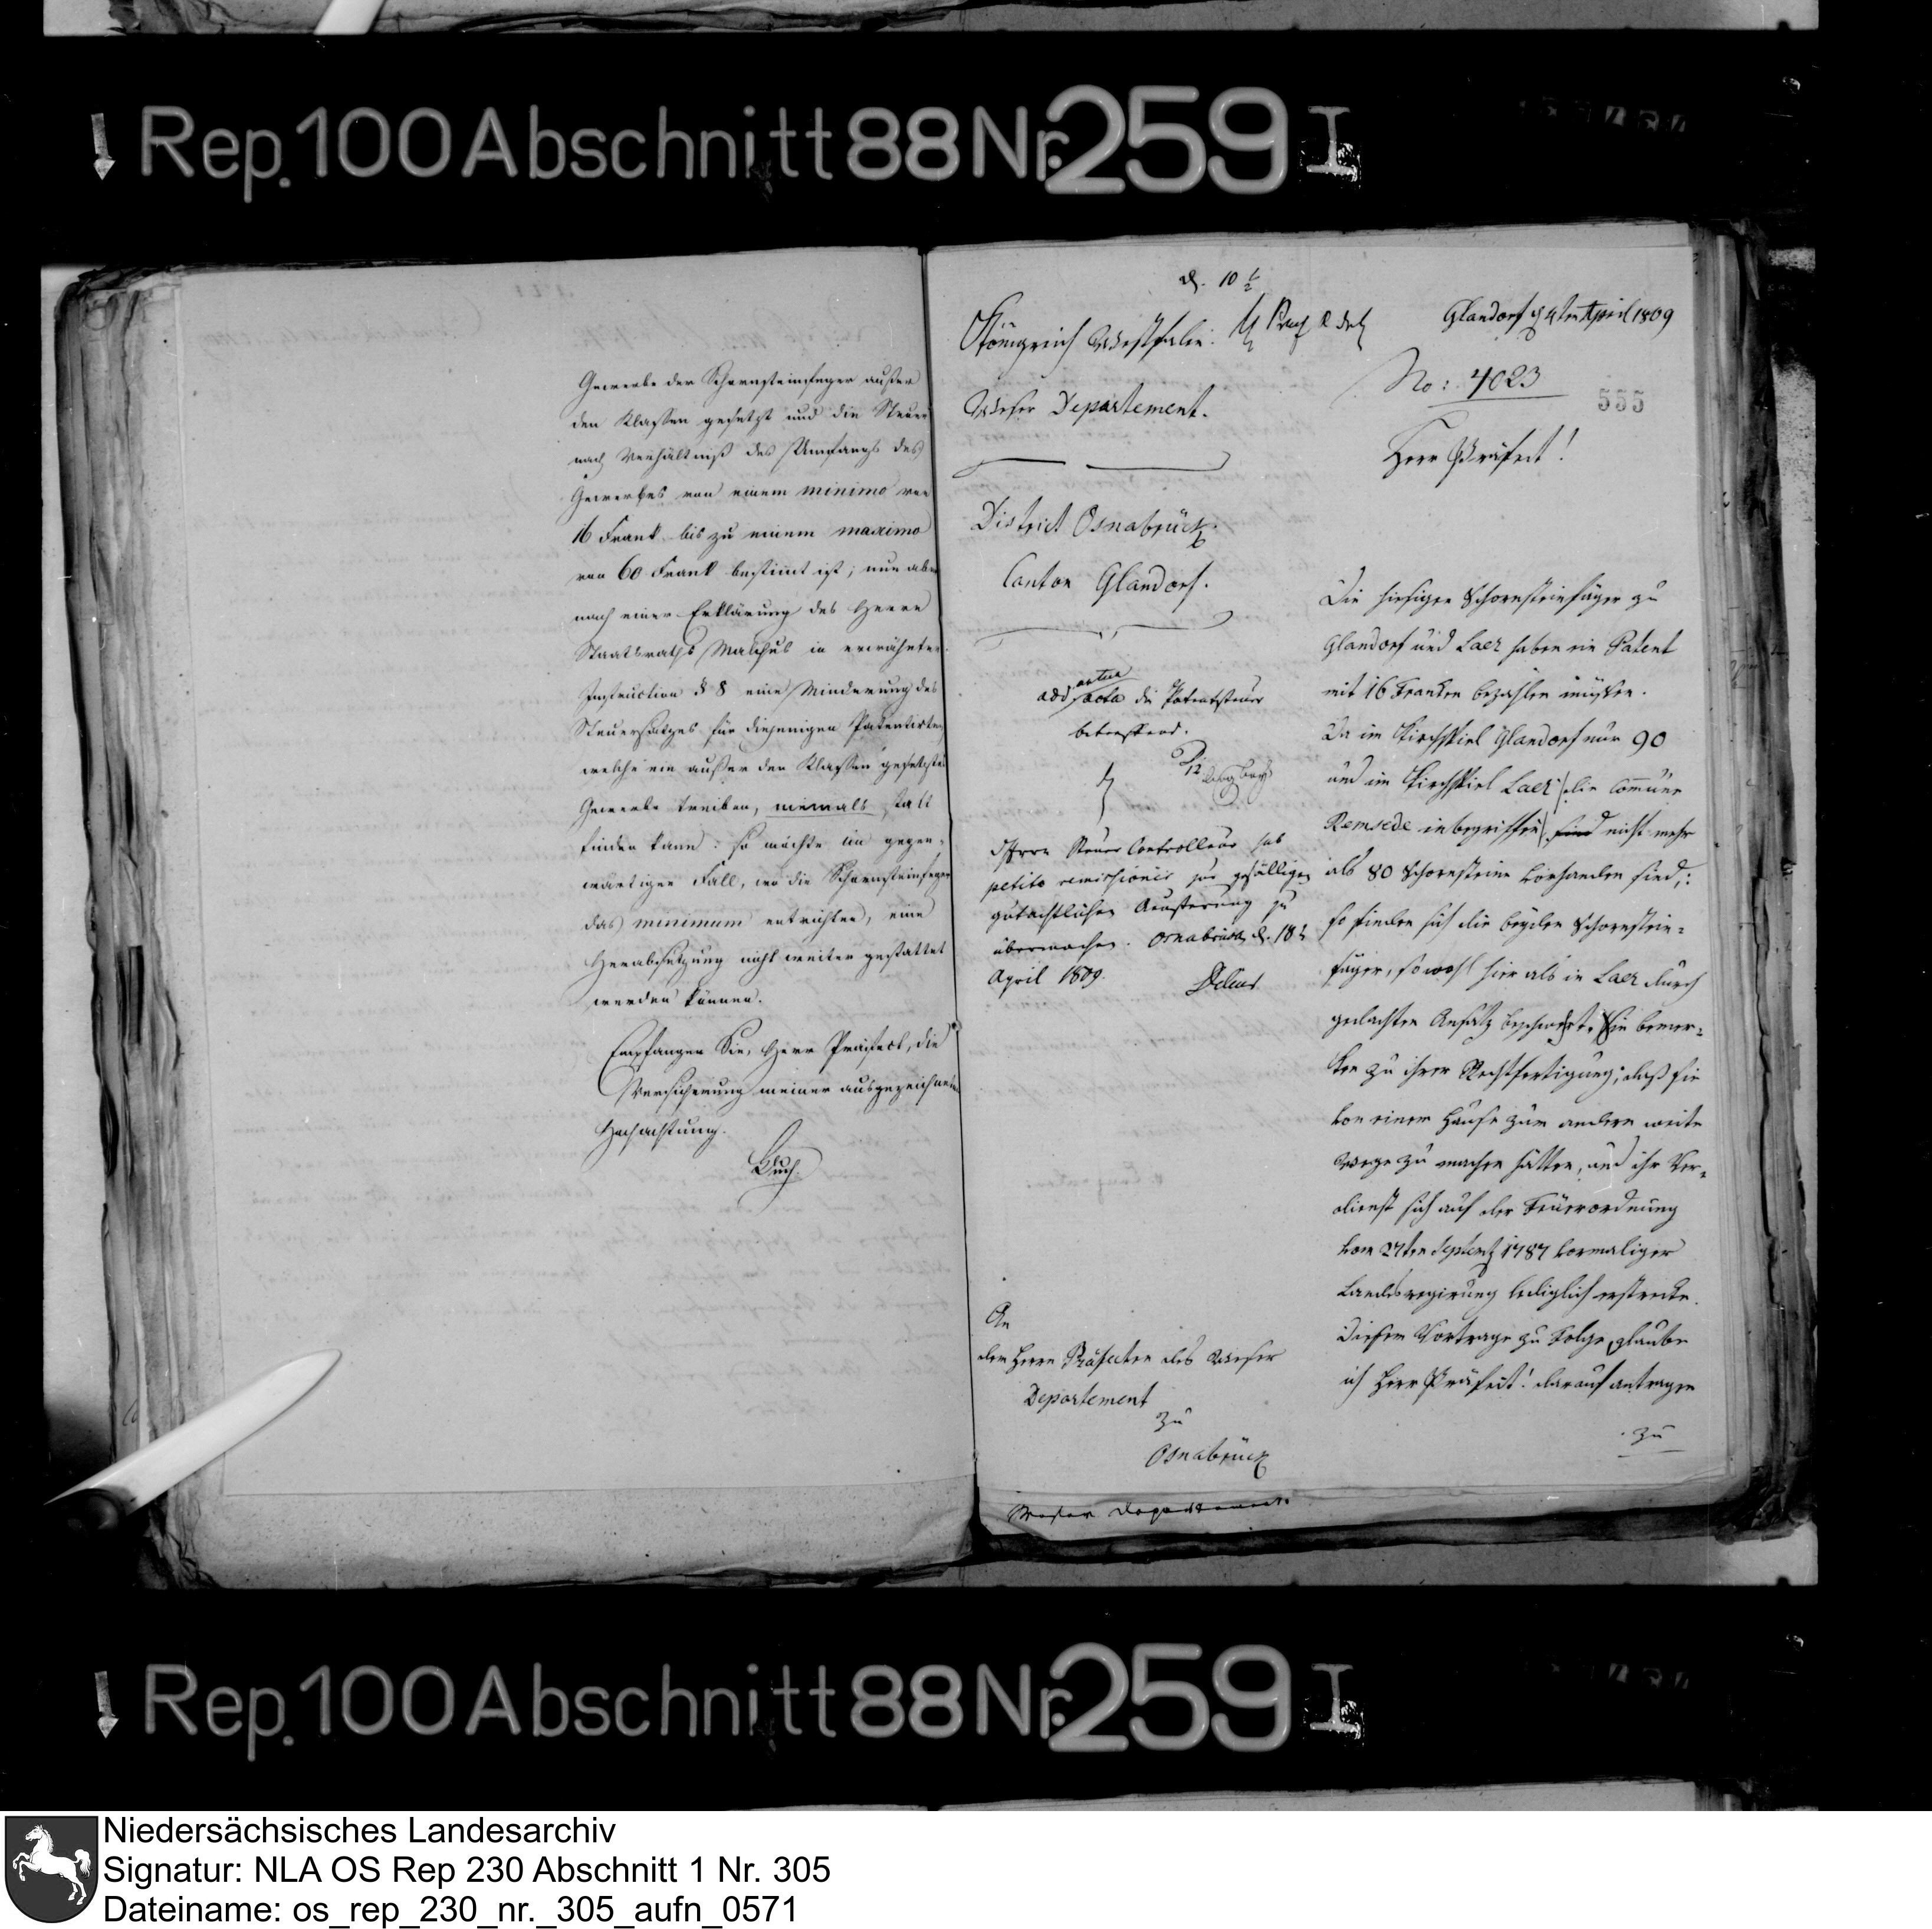 Rep. 100 Abschnitt 88 Nr. 259 I
Gewerbe der Schornsteinfeger außer
den Klassen gesetzt und die Steuer
nach Verhältniß des Umfangs des
Gewerbes von einem minimo von
16 Frank bis zu einem maximo
von 60 Frank bestimt ist; nun aber
nach einer Erklärung des Herrn
Staatsraths Malchus in erwähnter
Instruction § 8 eine Minderung des
Steuersatzes für diejenigen Patentisten
welche ein außer den Klassen gesetztes
Gewerbe treiben, niemals statt
finden kann: so möchte im gegen-
wärtigen Fall, wo die Schornsteinfeger
das minimum entrichten, eine
Herabsetzung nicht weiter gestattet
werden können.
Empfangen Sie, Herr Präfect, die
Versicherung meiner ausgezeichneten
Hochachtung.
Königreich Westfalen.
Weser Departement.
District Osnabrück.
Canton Glandorf.
add acta die Patentsteuer
betreffend.
Herrn Steuer Controlleur sub
petito remissionis zur gefälligen
gutachtlichen Aeusserung zu
übermachen. Osnabrück d. 18
April 1809.
Delius
An
den Herrn Präfecten des Weser
Departement
zu
Osnabrück
Weser Departement
Glandorf d 4ten April 1809
No: 4023
555
Herr Präfect!
Die hiesigen Schornsteinfäger zu
Glandorf und Laer haben ein Patent
mit 16 Franken bezahlen müssen.
Da im Kirchspiel Glandorf nur 90
und im Kirchspiel Laer /: die Commune
Remsede inbegriffen :/ sind nicht mehr
als 80 Schornsteine vorhanden sind,:
so finden sich die beyden Schornstein-
fäger, sowohl hier als in Laer durch
gedachten Ansatz beschwert. Sie bemer-
ken zu ihrer Rechtfertigung, daß sie
von einem Hause zum andern weite
Wege zu machen hätten, und ihr Ver-
dienst sich auf der Feuerordnung
vom 27ten Septemb 1787 vormaliger
Landesregirung lediglich erstrecke.
Diesem Vortrage zu Folge glaube
ich Herr Präfect! darauf antragen
zu
Rep. 100 Abschnitt 88 Nr. 259 I
Niedersächsisches Landesarchiv
Signatur: NLA OS Rep 230 Abschnitt 1 Nr. 305
Dateiname: os_rep_230_nr._305_aufn_0571